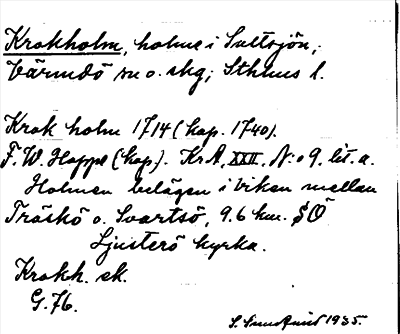 Krokholm, holme i Saltsjön,
Värmdö sn o. skg; Sthlms l.
Krok holm 1714 (kop. 1740).
F. W. Hoppe (kop). Kr A, XXII. N:o 9. lit. a.
Holmen belägen i viken mellan
Träskö o. Svartsö, 9.6 km. SÖ
Ljusterö kyrka.
Krokh. sk.
G. 76.
1935.